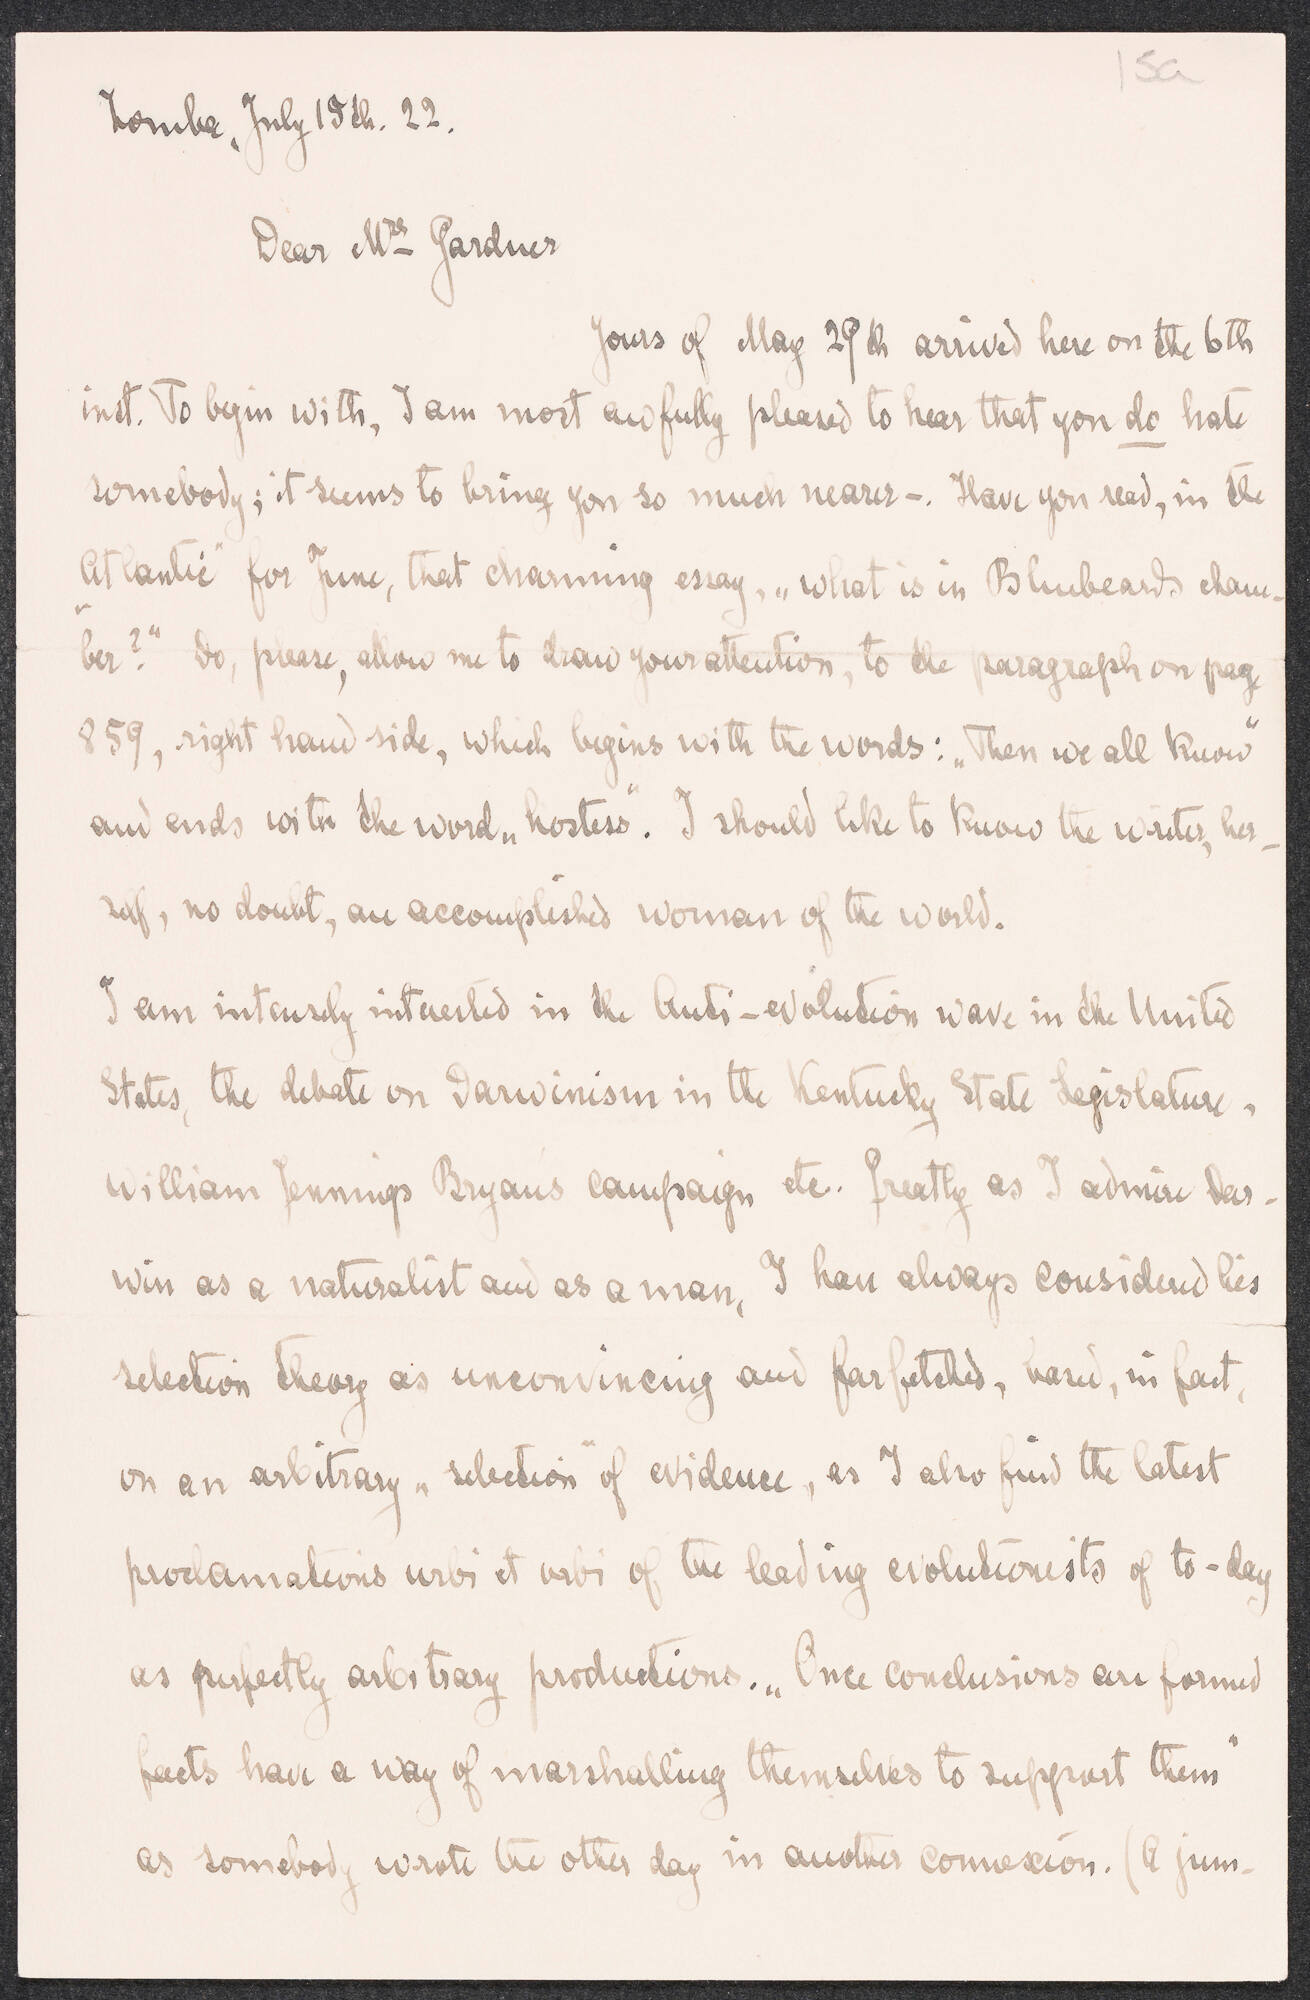 15a
Zomba, July 15th. 22.
Dear Mrs Gardner
Yours of May 29th arrived here on the 6th
inst. To begin with, I am most awfully pleased to hear that you do hate
somebody; it seems to bring you so much nearer –. Have you read, in the
"Atlantic" for June, that charming essay, „what is in Bluebeards cham-
ber?" Do, please, allow me to draw your attention, to the paragraph on page
859, right hand side, which begins with the words: „Then we all know"
and ends with the word „hostess". I should like to know the writer, her-
self, no doubt, an accomplished woman of the world.
I am intensely interested in the Anti-evolution wave in the United
States, the debate on Darwinism in the Kentucky State Legislature,
William Jennings Bryan's campaign etc. Greatly as I admire Dar-
win as a naturalist and as a man, I have always considered his
selection theory as unconvincing and farfetched, based, in fact,
on an arbitrary „selection" of evidence, as I also find the latest
proclamations urbi et orbi of the leading evolutionists of to-day
as perfectly arbitrary productions. „Once conclusions are formed
facts have a way of marshalling themselves to support them"
as somebody wrote the other day in another connexion. (A jum-